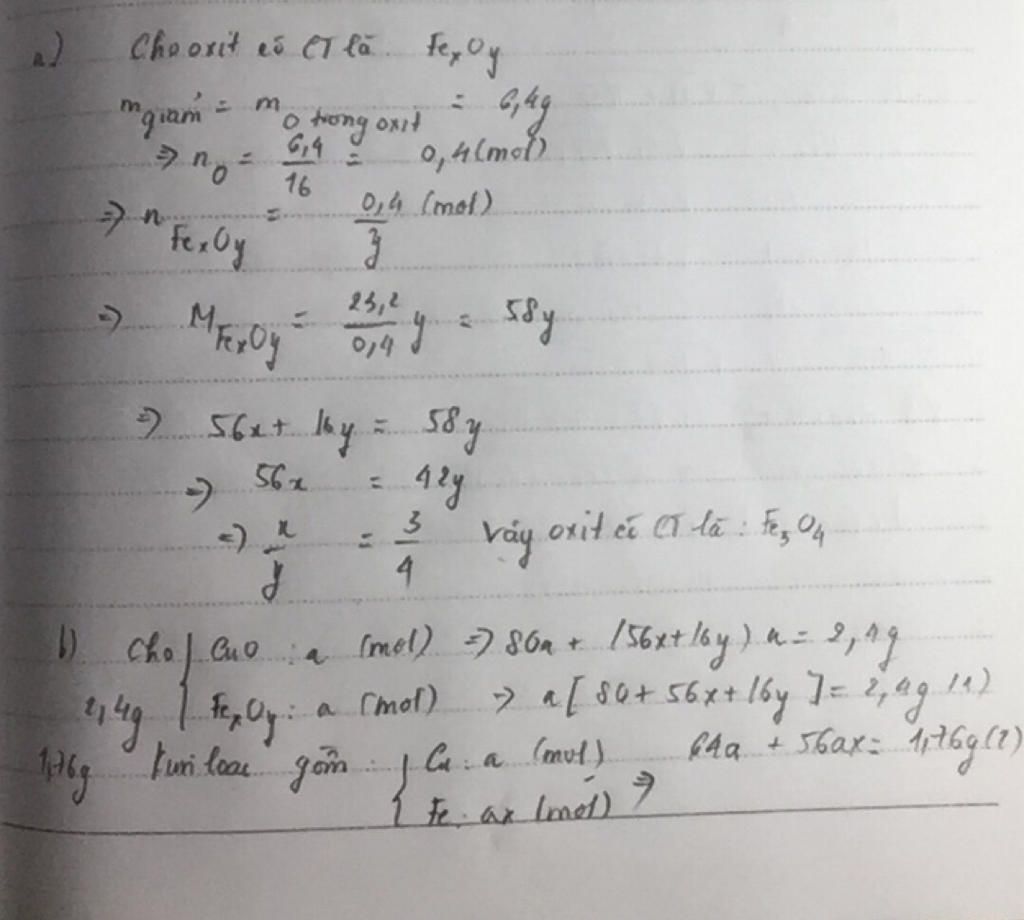 a) Cho oxit có CT là Fe_xO_y
m giảm = m O trong oxit = 6,4g
⇒ n_O = 6,4/16 = 0,4 (mol)
⇒ n Fe_xO_y = 0,4/y (mol)
⇒ M Fe_xO_y = 23,2/0,4 y = 58y
⇒ 56x + 16y = 58y
⇒ 56x = 42y
⇒ x/y = 3/4 Vậy oxit có CT là : Fe_3O_4
b) Cho { CuO : a (mol) ⇒ 80a + (56x+16y) a = 2,4g
2,4g { Fe_xO_y : a (mol) → a [ 80 + 56x + 16y ] = 2,4g (1)
1,76g kim loại gồm : { Cu : a (mol) 64a + 56ax = 1,76g (2)
{ Fe : ax (mol) ⇒